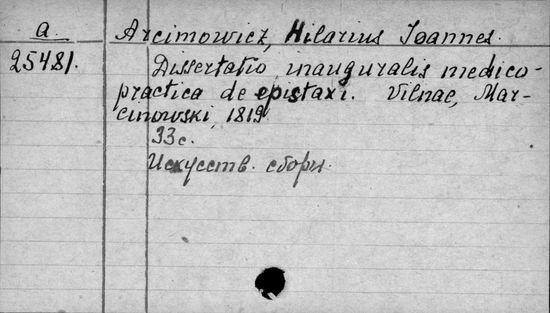 a
Arcimowicz, Hilarius Joannes.
25481.
Dissertatio inauguralis medico-
practica de epistaxi. Vilnae, Mar-
cinowski, 1819
33 с.
Искусств. сборн.